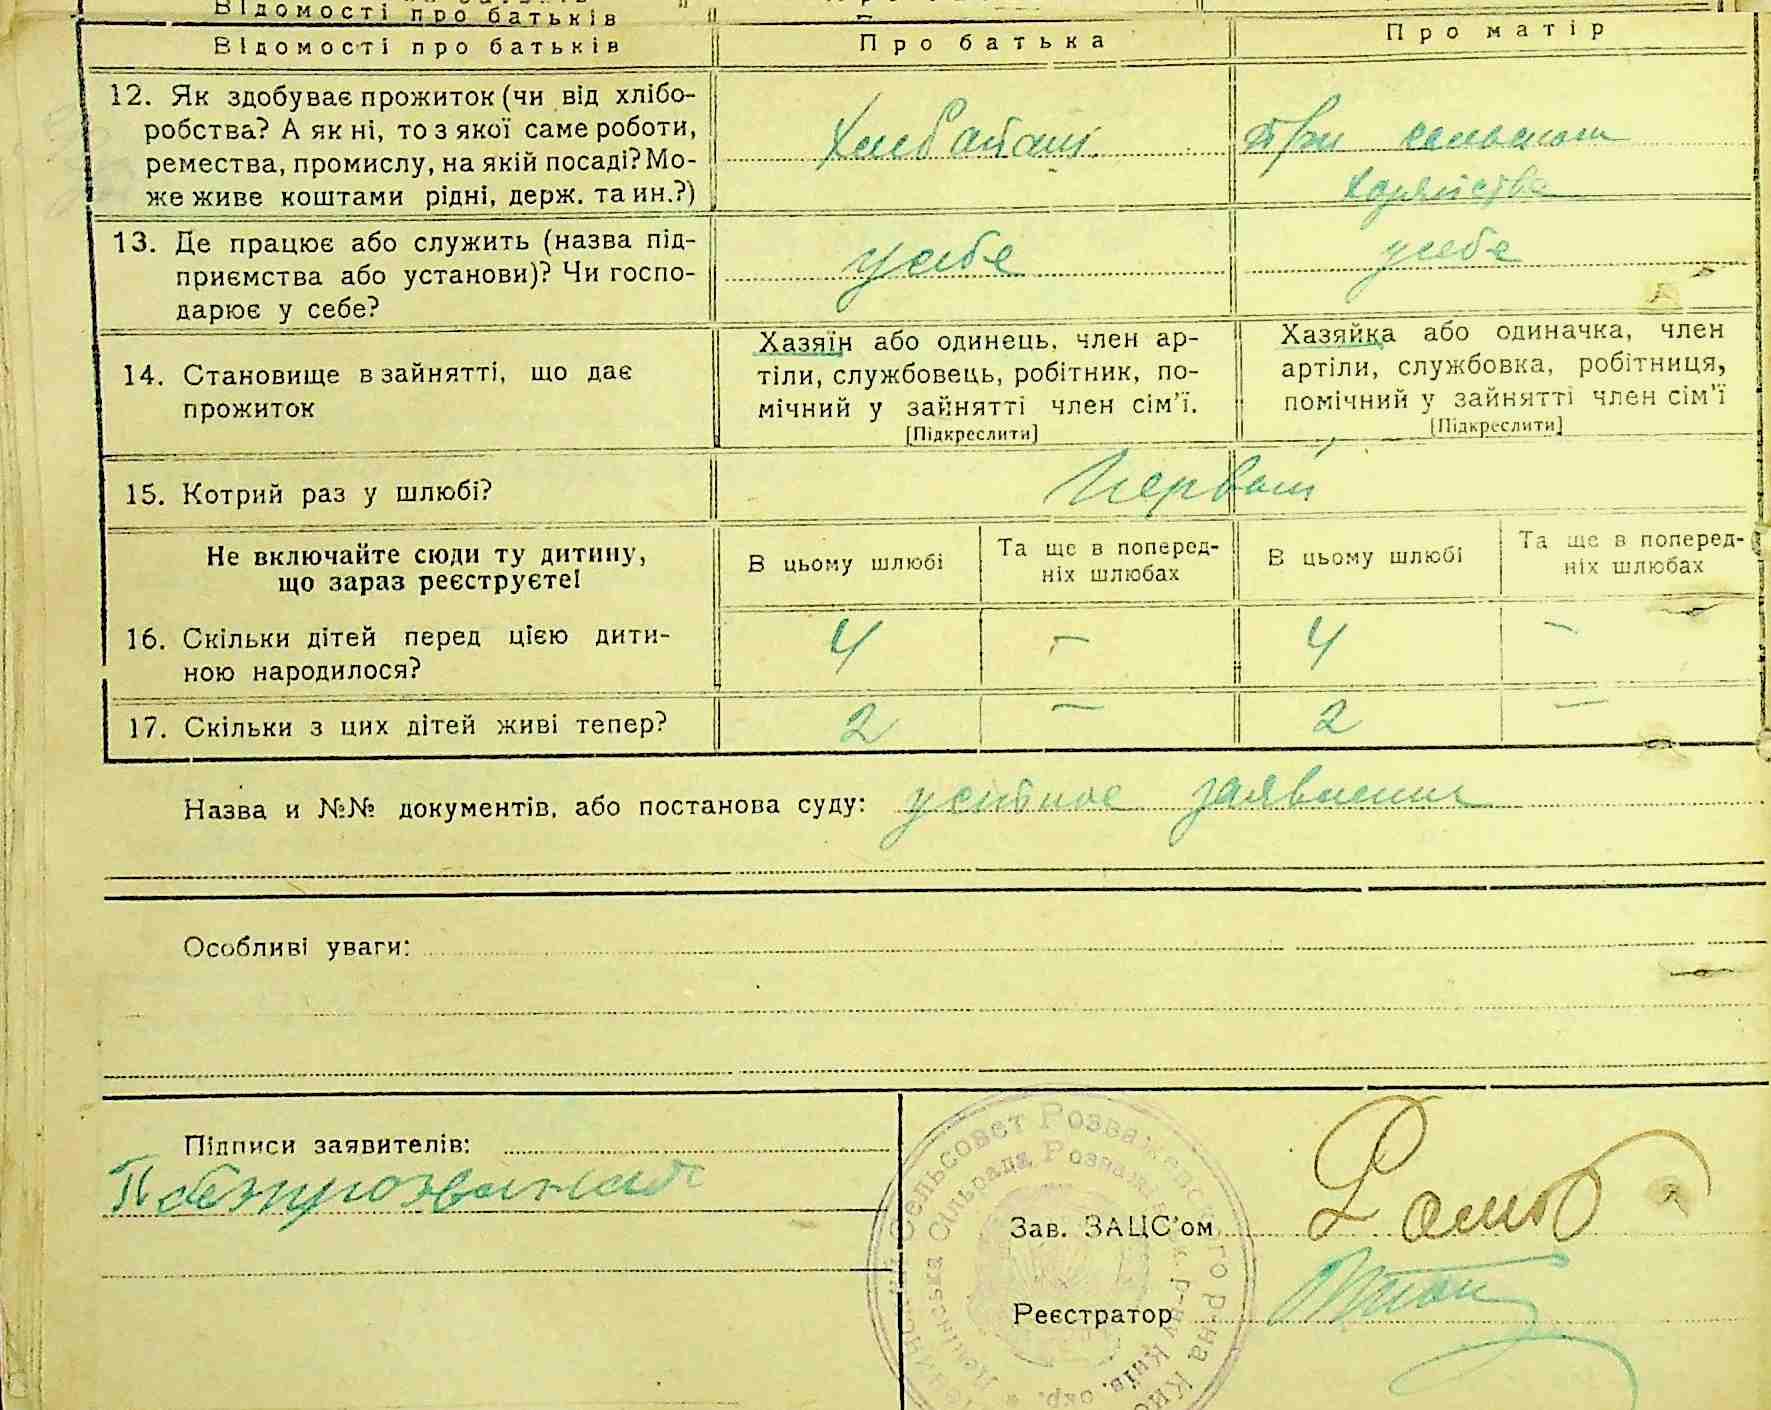 Відомості про батьків
Відомості про батьків Про батька Про матір
12. Як здобуває прожиток (чи від хлібо-
робства? А як ні, то з якої саме роботи,
ремества, промислу, на якій посаді? Мо-
же живе коштами рідні, держ. та ин.?)
при сельском
хозяйстве
13. Де працює або служить (назва під-
приємства або установи)? Чи госпо-
дарює у себе?
у себе у себе
14. Становище в зайнятті, що дає
прожиток
Хазяїн або одинець, член ар-
тіли, службовець, робітник, по-
мічний у зайнятті член сім'ї.
[Підкреслити]
Хазяйка або одиначка, член
артіли, службовка, робітниця,
помічний у зайнятті член сім'ї
[Підкреслити]
15. Котрий раз у шлюбі? Первый
Не включайте сюди ту дитину,
що зараз реєструєте!
В цьому шлюбі
Та ще в поперед-
ніх шлюбах
В цьому шлюбі
Та ще в поперед-
ніх шлюбах
16. Скільки дітей перед цією дити-
ною народилося?
4 — 4 —
17. Скільки з цих дітей живі тепер? 2 — 2 —
Назва и №№ документів, або постанова суду: устное заявление
Особливі уваги:
Підписи заявителів:
Зав. ЗАЦС'ом
Реєстратор
Сельсовет Розважевского р-на
Сільрада Розваж
р-ну Київ. окр.